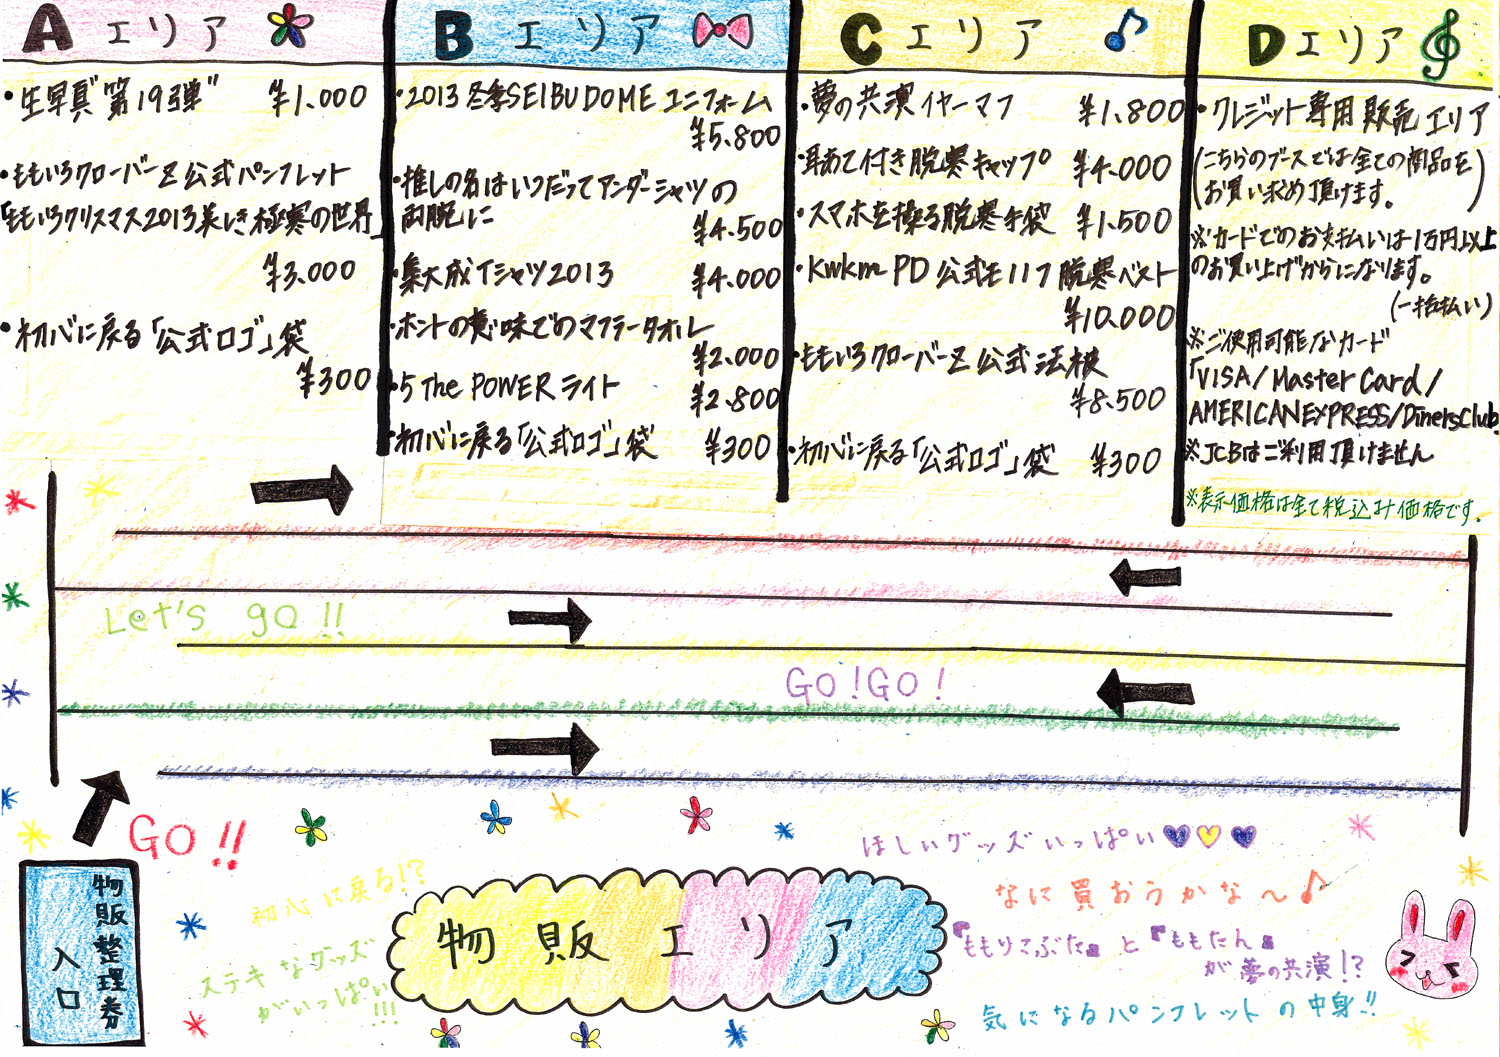 Aエリア
・生写真"第19弾" ¥1.000
・ももいろクローバーZ公式パンフレット
「ももいろクリスマス2013美しき極寒の世界」
¥3.000
・初心に戻る「公式ロゴ」袋
¥300
Bエリア
・2013冬季SEIBU DOMEユニフォーム
¥5.800
・推しの名はいつだってアンダーシャツの
両腕に
¥4.500
・集大成Tシャツ2013 ¥4.000
・ホントの意味でのマフラータオル
¥2.000
・5 The POWERライト ¥2.800
・初心に戻る「公式ロゴ」袋 ¥300
Cエリア
・夢の共演イヤーマフ ¥1.800
・耳あて付き脱寒キャップ ¥4.000
・スマホを操る脱寒手袋 ¥1.500
・KWkm PD公式モノノフ脱寒ベスト
¥10.000
・ももいろクローバーZ公式法被
¥8.500
・初心に戻る「公式ロゴ」袋 ¥300
Dエリア
・クレジット専用販売エリア
(こちらのブースでは全ての商品を
お買い求め頂けます。)
※カードでのお支払いは1万円以上
のお買い上げからになります。
(一括払い)
※ご使用可能なカード
「VISA/MasterCard/
AMERICANEXPRESS/DinersClub」
※JCBはご利用頂けません
※表示価格は全て税込み価格です.
Let's go!!
GO!GO!
GO!!
物販整理券
入口
初心に戻る!?
ステキなグッズ
がいっぱい
!!!
物販エリア
ほしいグッズいっぱい
なに買おうかな〜♪
『ももりこぶた』と『ももたん』
が夢の共演!?
気になるパンフレットの中身!!